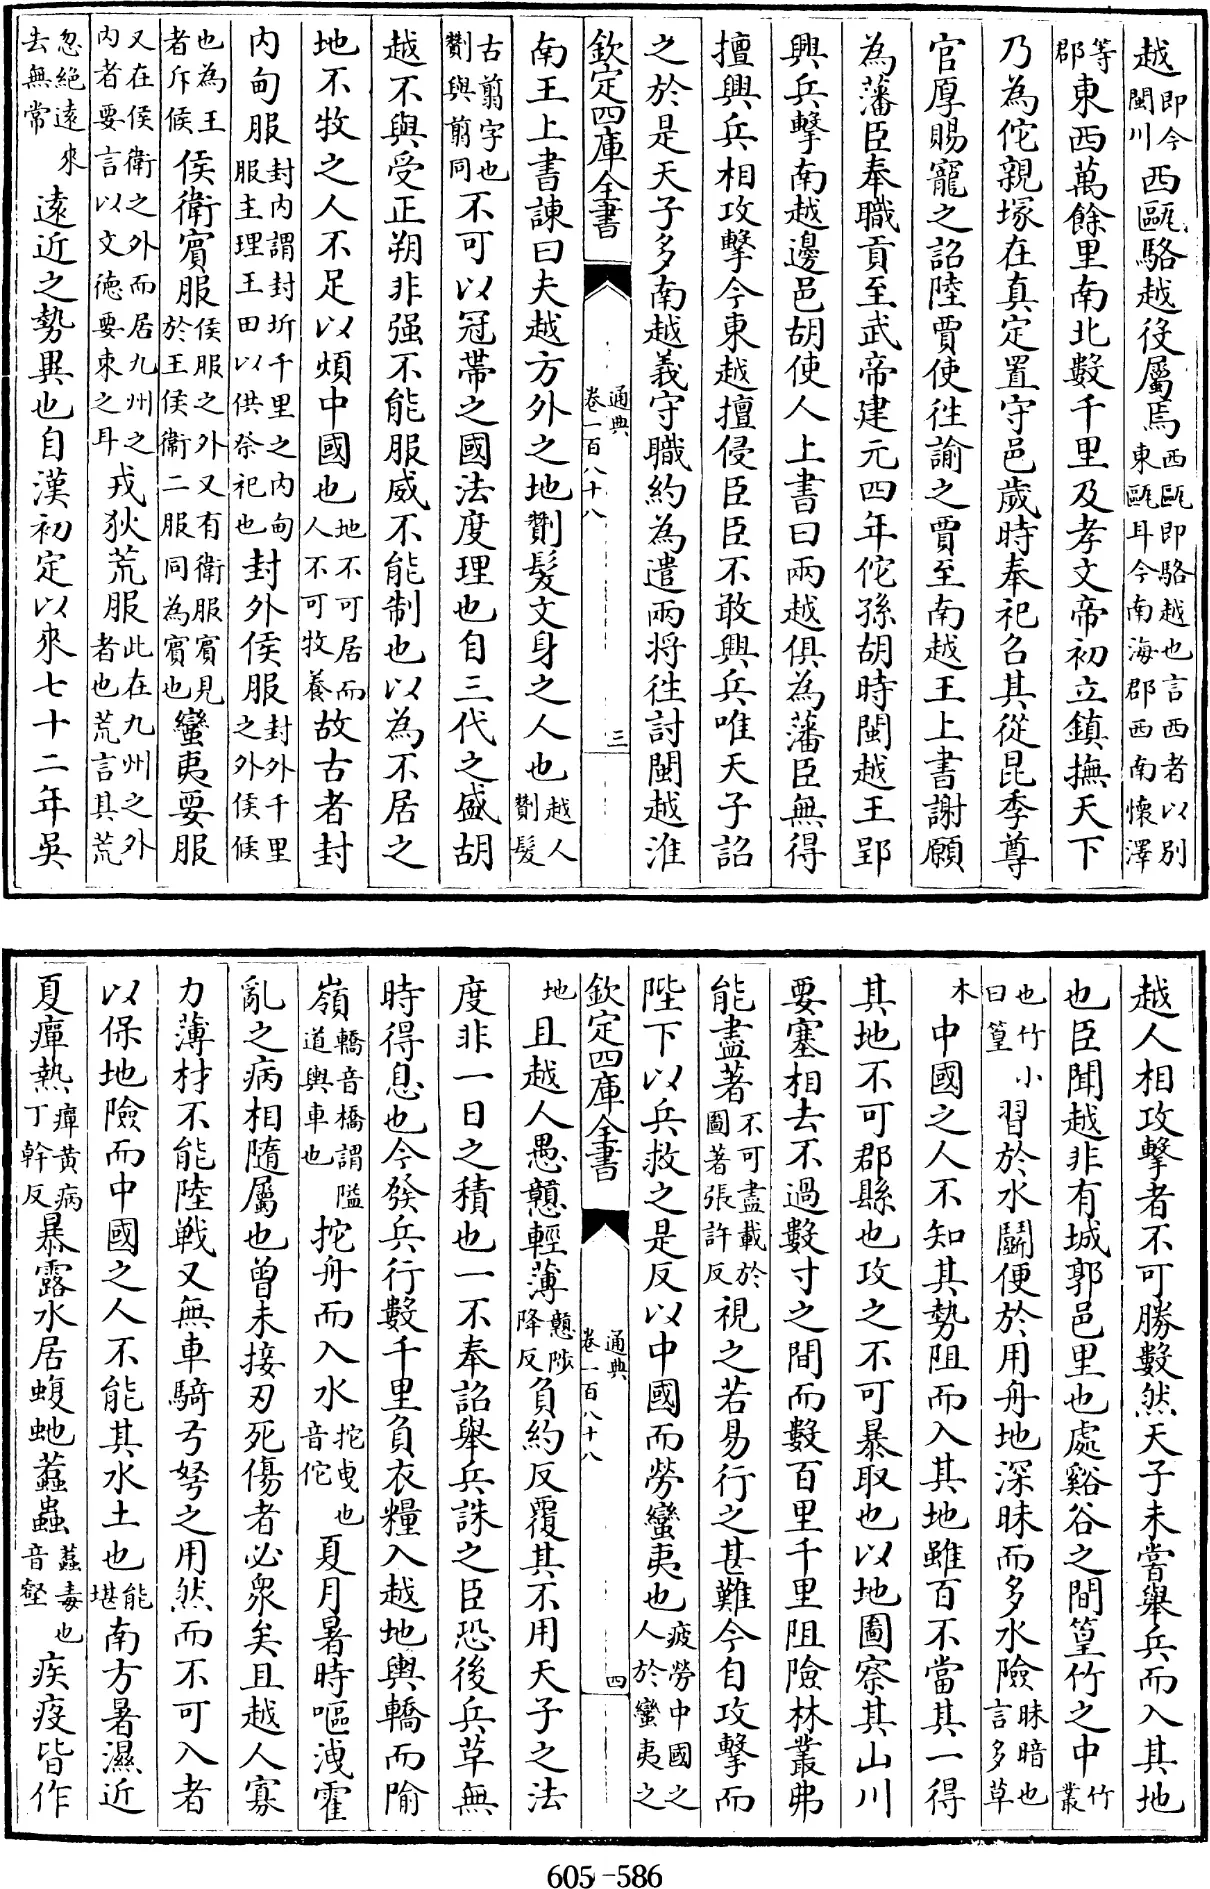 越即今閩川西甌駱越役屬焉西甌即駱越也言西者以别東甌耳今南海郡西南懷澤
等郡東西萬餘里南北數千里及孝文帝初立鎮撫天下
乃為佗親塚在真定置守邑歲時奉祀召其從昆季尊
官厚賜寵之詔陸賈使往諭之賈至南越王上書謝願
為藩臣奉職貢至武帝建元四年佗孫胡時閩越王郢
興兵擊南越邊邑胡使人上書曰兩越俱為藩臣無得
擅興兵相攻擊今東越擅侵臣臣不敢興兵唯天子詔
之於是天子多南越義守職約為遣兩将往討閩越淮
欽定四庫全書 通典卷一百八十八 三
南王上書諫曰夫越方外之地劗髮文身之人也越人劗髮
古翦字也劗與翦同不可以冠帶之國法度理也自三代之盛胡
越不與受正朔非强不能服威不能制也以為不居之
地不牧之人不足以煩中國也地不可居而人不可牧養故古者封
内甸服封内謂封圻千里之内甸服主理王田以供祭祀也封外侯服封外千里之外侯候
也為王者斥候侯衛賓服侯服之外又有衛服賓見於王侯衛二服同為賓也蠻夷要服
又在侯衛之外而居九州之内者要言以文德要束之耳戎狄荒服此在九州之外者也荒言其荒
忽絶遠來去無常遠近之勢異也自漢初定以來七十二年吳
越人相攻擊者不可勝數然天子未嘗舉兵而入其地
也臣聞越非有城郭邑里也處谿谷之間篁竹之中竹叢
也竹小曰篁習於水鬭便於用舟地深昧而多水險昧暗也言多草
木中國之人不知其勢阻而入其地雖百不當其一得
其地不可郡縣也攻之不可暴取也以地圖察其山川
要塞相去不過數寸之間而數百里千里阻險林叢弗
能盡著不可盡載於圖著張許反視之若易行之甚難今自攻擊而
陛下以兵救之是反以中國而勞蠻夷也疲勞中國之人於蠻夷之
欽定四庫全書 通典卷一百八十八 四
地且越人愚戇輕薄戇陟降反負約反覆其不用天子之法
度非一日之積也一不奉詔舉兵誅之臣恐後兵革無
時得息也今發兵行數千里負衣糧入越地輿轎而隃
嶺轎音橋謂隘道輿車也拕舟而入水拕曳也音佗夏月暑時嘔洩霍
亂之病相隨屬也曾未接刃死傷者必衆矣且越人寡
力薄材不能陸戰又無車騎弓弩之用然而不可入者
以保地險而中國之人不能其水土也能堪南方暑濕近
夏癉熱癉黄病丁幹反暴露水居蝮虵蠚蟲蠚毒也音壑疾疫皆作
605-586